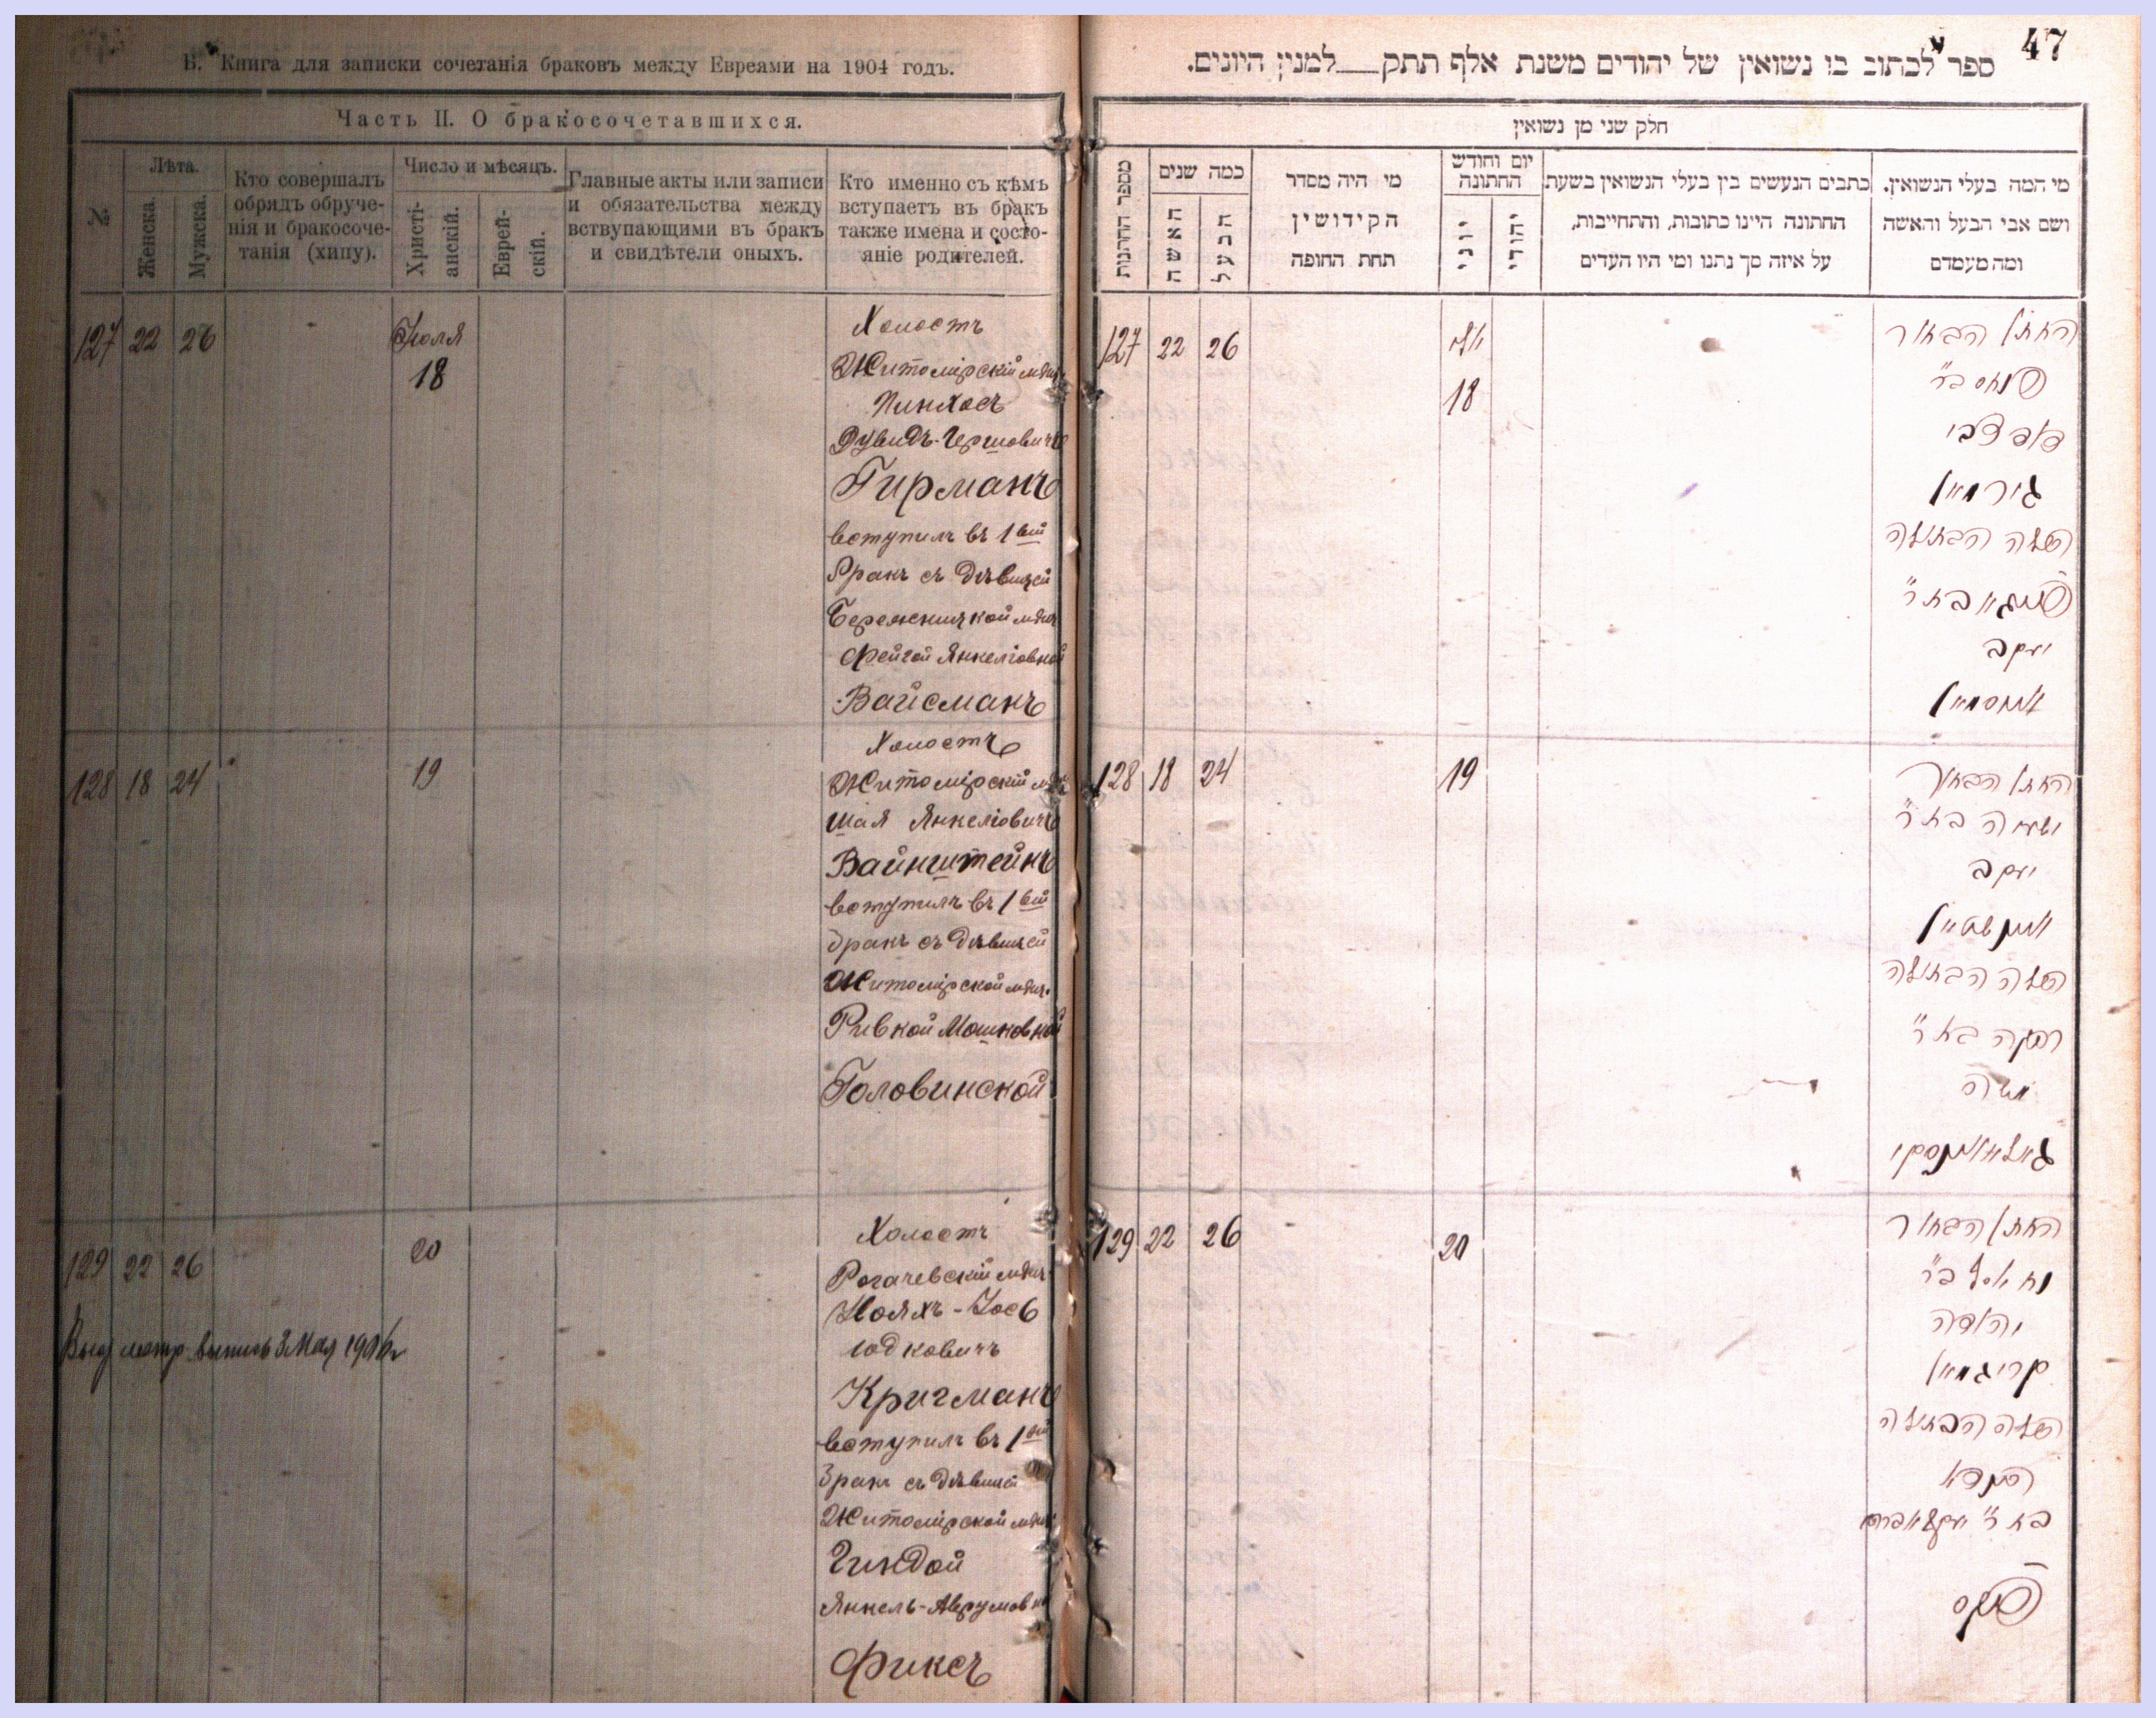 В. Книга для записки сочетанія браковъ между Евреями на 1904 годъ.
Часть II. О бракосочетавшихся.
№
Лѣта.
Женска.
Мужска.
Кто совершалъ
обрядъ обруче-
нія и бракосоче-
танія (хипу).
Число и мѣсяцъ.
Христі-
анскій.
Еврей-
скій.
Главные акты или записи
и обязательства между
вствупающими въ бракъ
и свидѣтели оныхъ.
Кто именно съ кѣмъ
вступаетъ въ бракъ
также имена и состо-
яніе родителей.
127 22 26
Іюля
18
Холостъ
Житомірскій мѣщ.
Пинхосъ
Дувидъ-Гершовичъ
Гирманъ
вступилъ въ 1вый
бракъ съ дѣвицей
Бережницкой мѣщ.
Фейгой Янкеліовной
Вайсманъ
128 18 24
19
Холостъ
Житомірскій мѣщ.
Шая Янкеліовичъ
Вайнштейнъ
вступилъ въ 1вый
бракъ съ дѣвицей
Житомірской мѣщ.
Ривкой Мошковной
Головинской
129 22 26
20
Выд метр. выпись 3 Мая 1906 г
Холостъ
Рогачевскій мѣщ.
Нояхъ-Іось
Юдковичъ
Кригманъ
вступилъ въ 1вый
бракъ съ дѣвицей
Житомірской мѣщ.
Гиндой
Янкель-Аврумовной
Фиксъ
47
ספר לכתוב בו נשואין של יהודים משנת אלף תתק___למנין היונים.
חלק שני מן נשואין
מספר החתונות
כמה שנים
האשה
הבעל
מי היה מסדר
הקידושין
תחת החופה
יום וחודש
החתונה
יוני
יהודי
כתבים הנעשים בין בעלי הנשואין בשעת
החתונה היינו כתובות, והתחייבות,
על איזה סך נתנו ומי היו העדים
מי המה בעלי הנשואין.
ושם אבי הבעל והאשה
ומה מעמדם
127 22 26
יולי
18
החתן הבחור
פנחס ב״ר
דוד צבי
גירמאן
הכלה הבתולה
פייגא בת ר״
יעקב
ווייסמאן
128 18 24
19
החתן הבחור
ישעיה בת ר״
יעקב
וויינשטיין
הכלה הבתולה
רבקה בת ר״
משה
גאלאווינסקי
129 22 26
20
החתן הבחור
נח יוסף ב״ר
יהודה
קריגמאן
הכלה הבתולה
הינדא
בת ר״ יעקב אברהם
פיקס